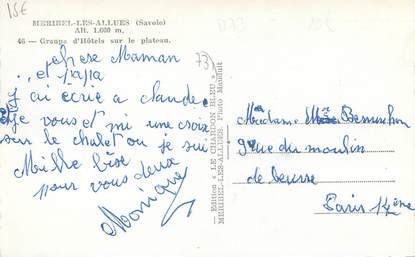 15€
MERIBEL-LES-ALLUES (Savoie)
Alt. 1.600 m.
46 — Groupe d'Hôtels sur le plateau.
73
chere Maman
et papa
j ai écrie a claude
je vous et mi une croix
sur le chalet ou je sui
Mille bise
pour vous deux
Monique
— Edition « LE CHARDON BLEU »
MERIBEL-LES-ALLUES. Photo
Madame
9 rue du moulin
de beurre
Paris 14ème